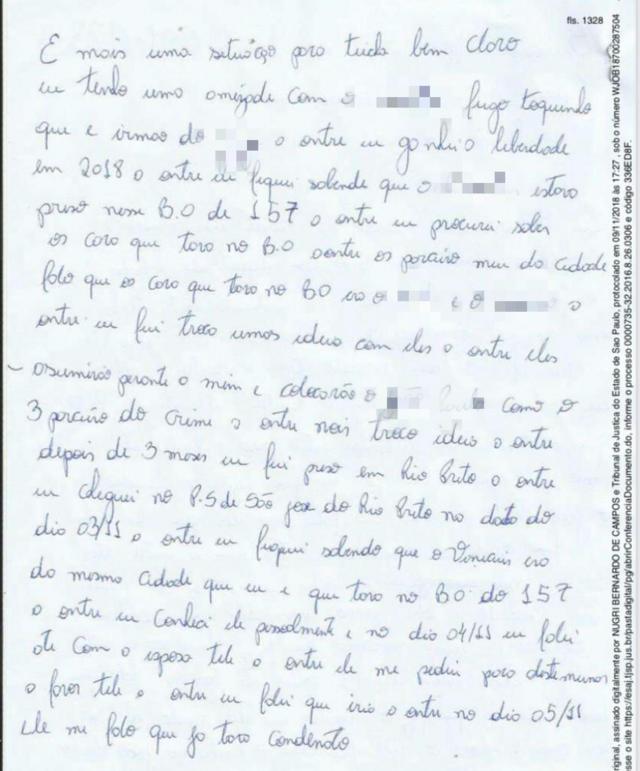 fls. 1328
E mais uma setuação para tuda bem claro
eu tendo uma amizade com o fugo toquendo
que e irmao do o ontre eu gonheio liberdade
em 2018 o ontre eu fiquei solendo que o estara
preso nesse B.O de 157 o ontre eu procurei saber
os cara que tora no B.O o ontre os porcairo meu do cidade
falo que os cara que tora no BO era o e o o
ontre eu fui troca umas ideia com eles o ontre eles
asumirão peronte o mim e colocarão o como o
3 porcairo do crime o ontre nois troco ideia o ontre
depois de 3 meses eu fui preso em Rio Brito o ontre
eu chegui no P.S de São jose do Rio Brito no data do
dia 03/11 o ontre eu fiqui solendo que o Viniciis era
do mesmo cidade que eu e que tora no BO do 157
o ontre eu conheci ele pesoalmente e no dia 04/11 eu falei
ate com o esposa tele o ontre ele me pediu para destemunor
o favor tele o ontre eu falei que iria o ontre no dia 05/11
ele me falo que jo tora condenato
riginal, assinado digitalmente por NUGRI BERNARDO DE CAMPOS e Tribunal de Justica do Estado de Sao Paulo, protocolado em 09/11/2018 às 17:27 , sob o número WJDB18700287504
sse o site https://esaj.tjsp.jus.br/pastadigital/pg/abrirConferenciaDocumento.do, informe o processo 0000735-32.2016.8.26.0306 e código 336ED8F.